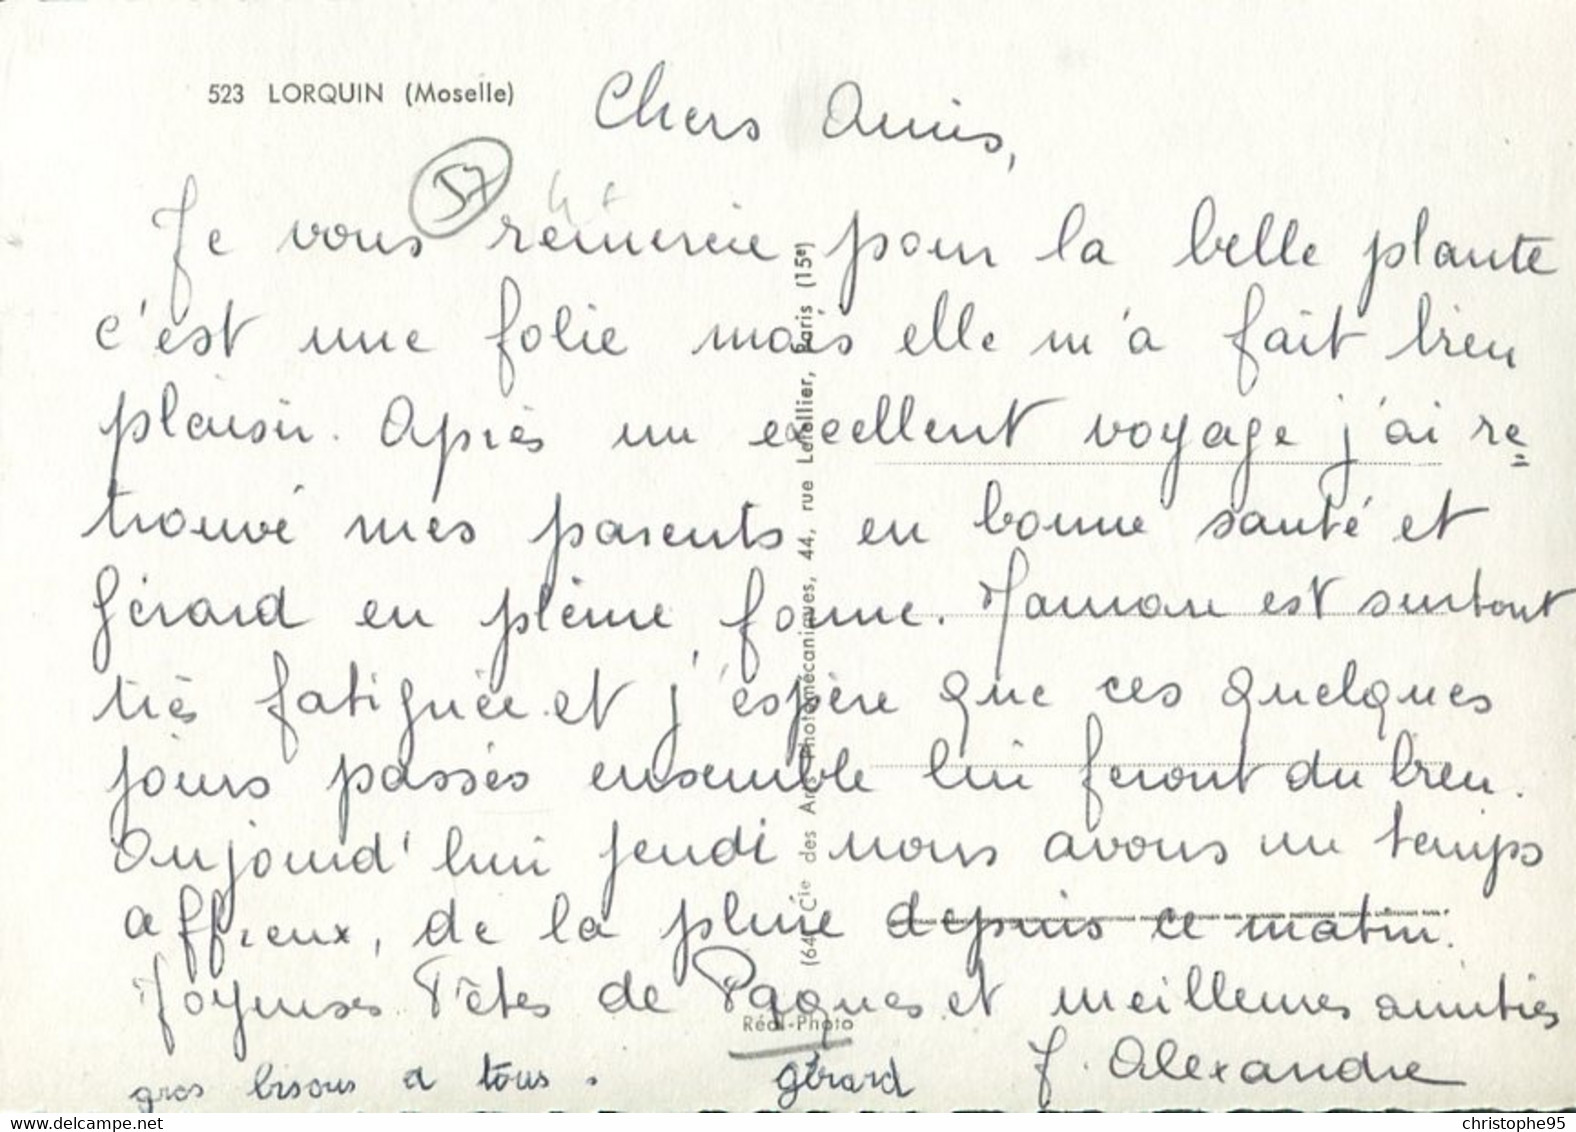 523 LORQUIN (Moselle)
Chers Amis,
57
Je vous remercie pour la belle plante
c'est une folie mais elle m'a fait bien
plaisir. Après un excellent voyage j'ai re
trouvé mes parents en bonne santé et
Gérard en pleine forme. Maman est surtout
très fatiguée et j'espère que ces quelques
jours passés ensemble lui feront du bien.
Aujourd'hui jeudi nous avons un temps
affreux, de la pluie depuis ce matin.
Joyeuses Fêtes de Pâques et meilleures amitiés
J. Alexandre
gros bisous a tous. gérard
des Arts Photomécaniques, 44, rue Letellier, Paris (15e)
Réal-Photo
delcampe.net
christophe95